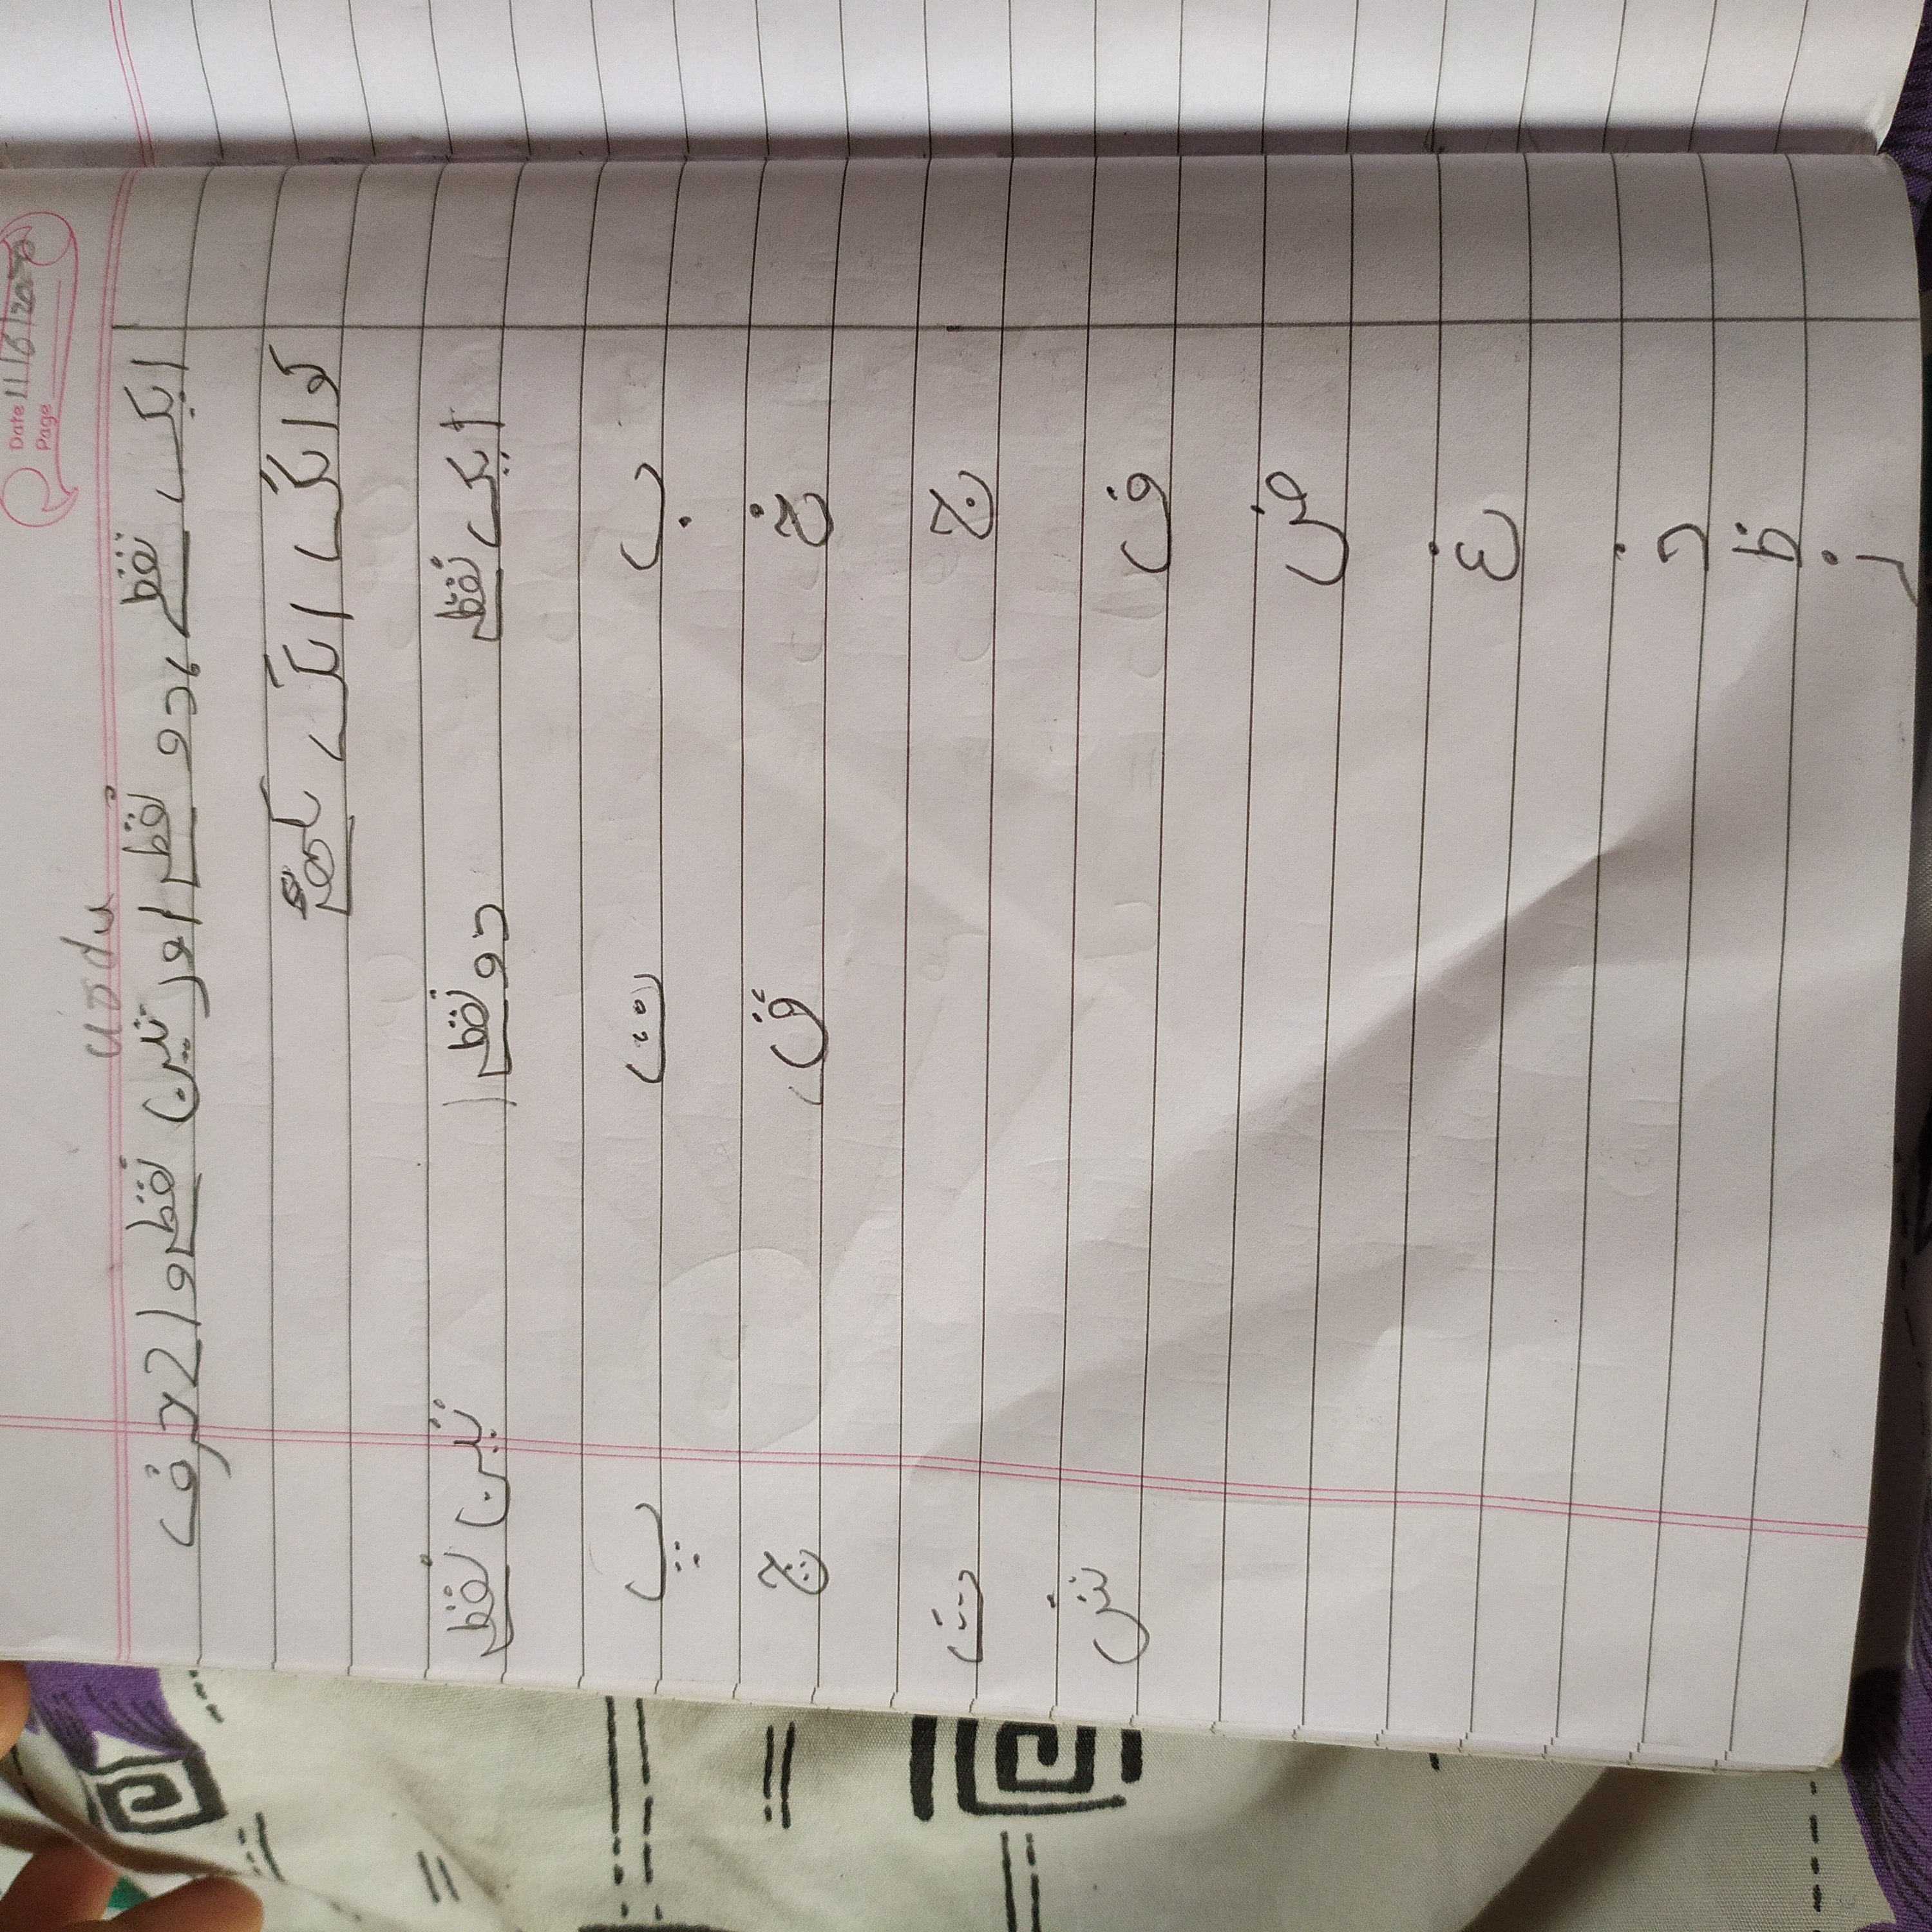 Date 11/6/20
Page
Urdu
ایک نقطے، دو نقطے اور تین نقطے والے حرف
کو الگ الگ لکھئے
ایک نقطے دو نقطے تین نقطے
ب ت پ
خ ق چ
ج ث
ف ش
ض
غ
ذ
ظ
ز